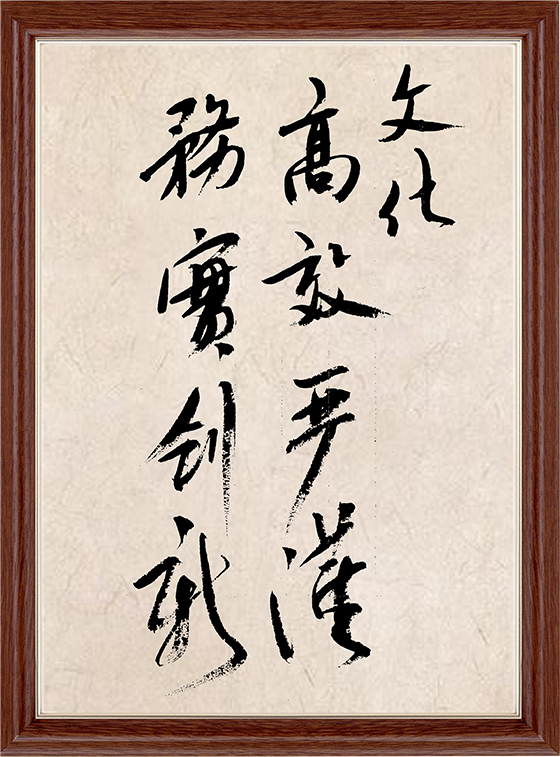 文化
高效严谨
務實创新